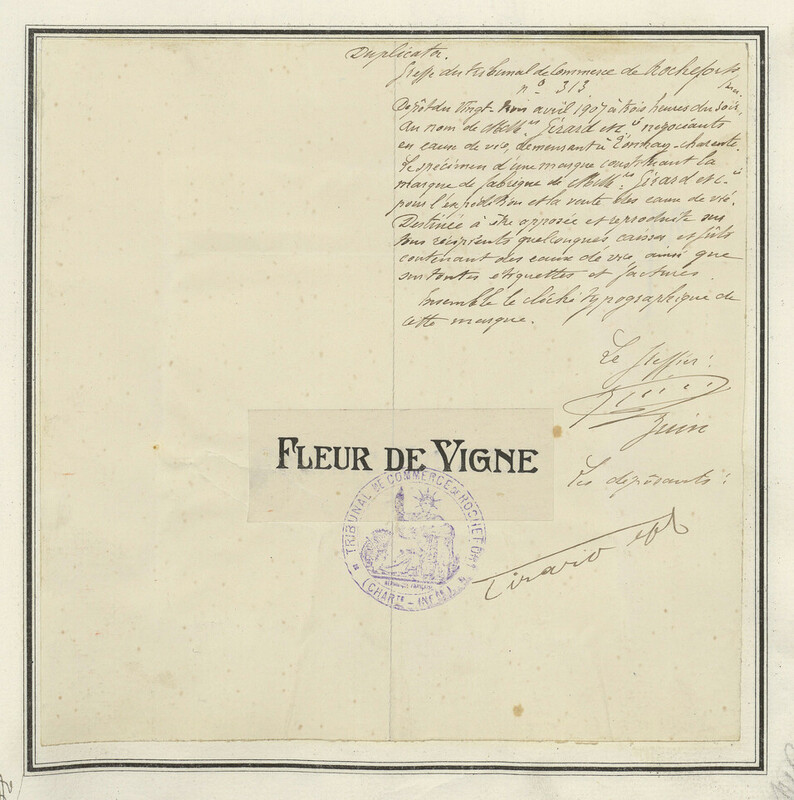 Duplicata.
Greffe du tribunal de Commerce de Rochefort s/ mer.
n° 313
Dépôt du vingt-trois avril 1907 à trois heures du soir,
au nom de MM.rs Girard et Cie négociants
en eaux de vie, demeurant à Tonnay-Charente.
Le spécimen d'une marque constituant la
marque de fabrique de MM.rs Girard et Cie
pour l'expédition et la vente des eaux de vie.
Destinée à être apposée et reproduite sur
tous récipients quelconques, caisses et fûts
contenant des eaux de vie, ainsi que
sur toutes etiquettes et factures.
Ensemble le cliché typographique de
cette marque.
Le Greffier:
Les déposants:
FLEUR DE VIGNE
TRIBUNAL DE COMMERCE DE ROCHEFORT
(CHARTE - INFRE)
Girard & Co